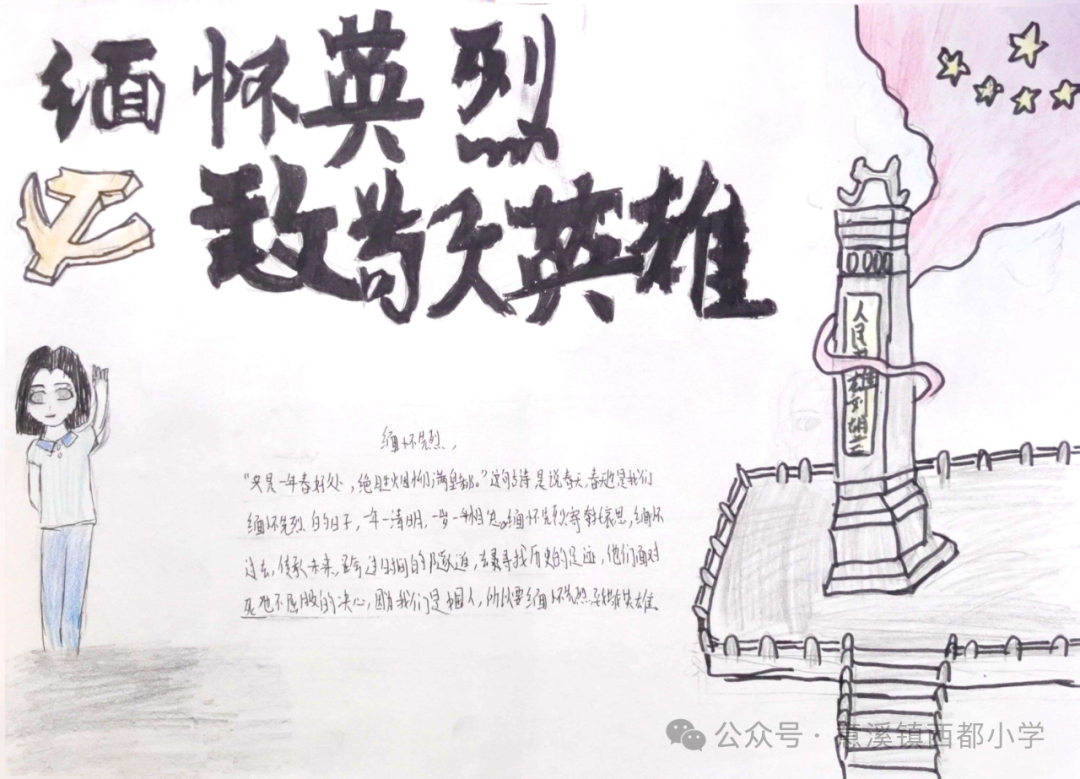 缅怀英烈
致敬英雄
人民英雄
缅怀先烈，
“又是一年春好处，绝胜烟柳满皇都。”这句诗是说春天，春也是我们
缅怀先烈的日子，一年一清明，一岁一缅怀先烈寄哀思，缅怀
过去，传承未来，时间的隧道，去寻找历史的足迹，他们面对
死也不屈服的决心，因为我们是中国人，所以要缅怀先烈英雄。
公众号·惠溪镇西都小学